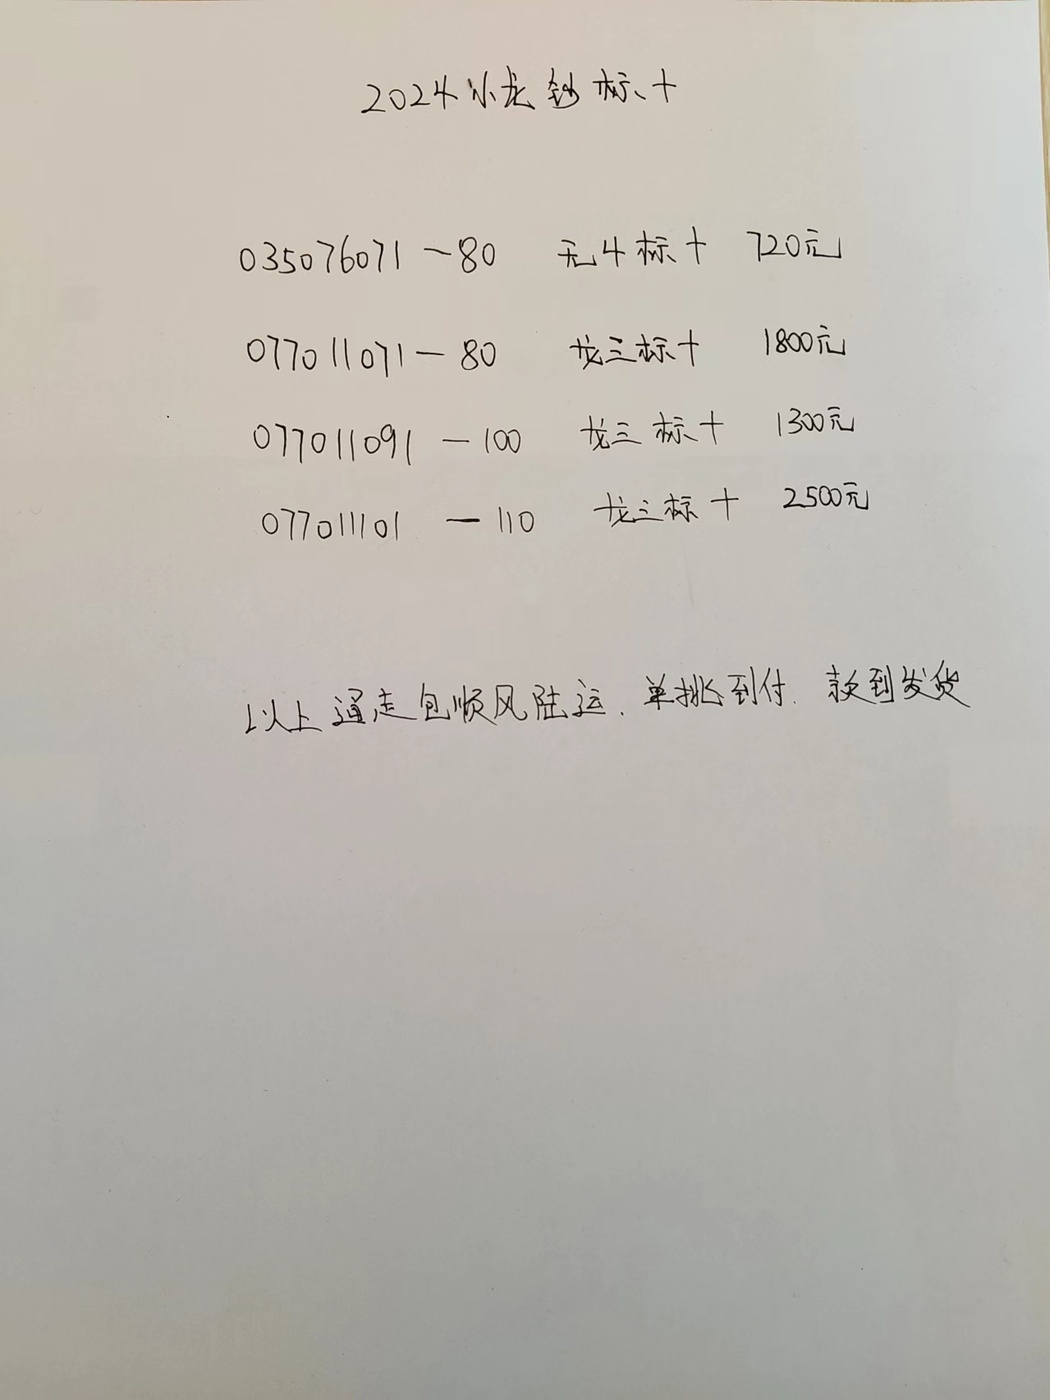 2024小龙钞标十
035076071-80 无4标十 720元
077011071-80 龙三标十 1800元
077011091-100 龙三标十 1300元
077011101-110 龙三标十 2500元
以上通走包顺风陆运.单挑到付.款到发货